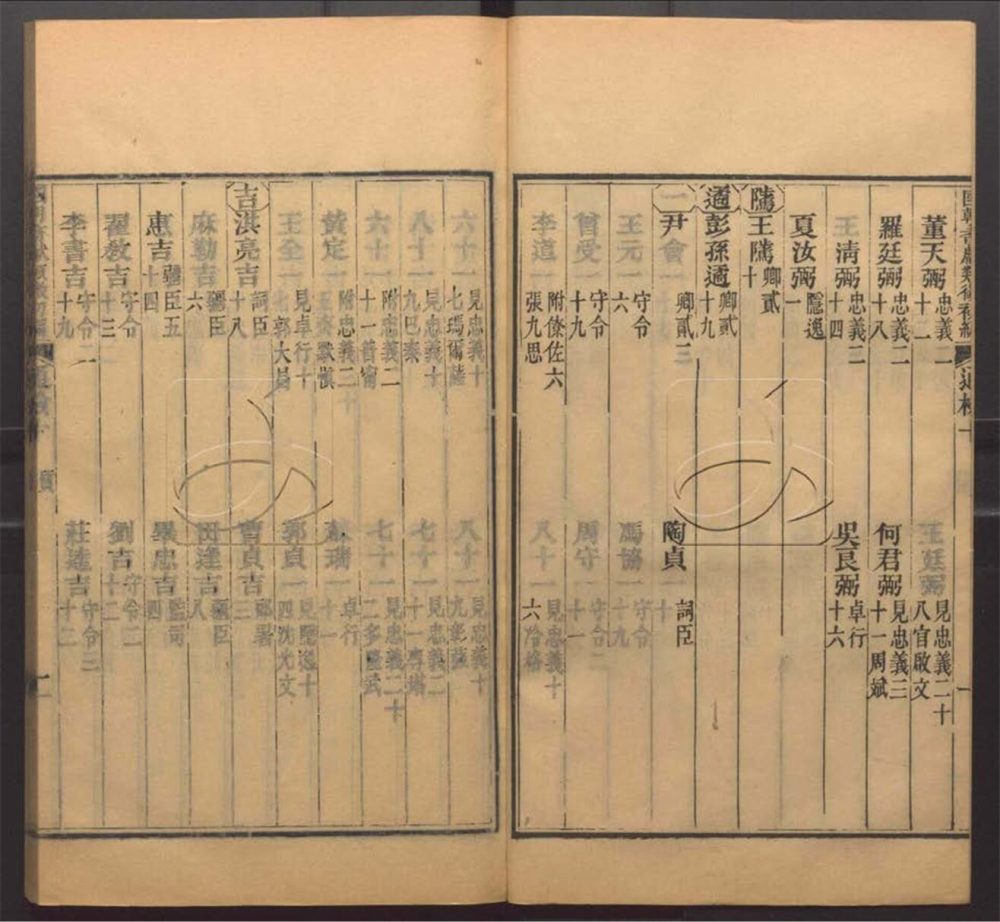 董天弼 忠義二十一
王廷弼 見忠義二十八官啟文
羅廷弼 忠義二十八
何君弼 見忠義三十一周斌
王淸弼 忠義三十四
吳良弼 卓行十六
夏汝弼 隱逸一
隲 王隲 卿貳十
遹 彭孫遹 卿貳十九
一 尹會一 卿貳三
陶貞一 詞臣十
王元一 守令六
馮協一 守令十九
曾受一 守令十九
周守一 守令二十一
李道一 附僚佐六張九思
八十一 見忠義十六
六十一 見忠義十七瑪爾薩
八十一 見忠義十九
八十一 見忠義十九巴泰
七十一 見忠義二十一
六十一 附忠義二十一
七十一 見忠義二十二
黃定一 附忠義二十
瑞一 卓行十一
王全一 見卓行十七郭大昌
郭貞一 見隱逸十四沈光文
吉 洪亮吉 詞臣十八
曹貞吉 郎署三
麻勒吉 疆臣六
田逢吉 疆臣八
惠吉 疆臣五十四
畢忠吉 監司四
翟敎吉 守令十三
劉吉 守令二十二
李書吉 守令二十九
莊逵吉 守令三十二
二